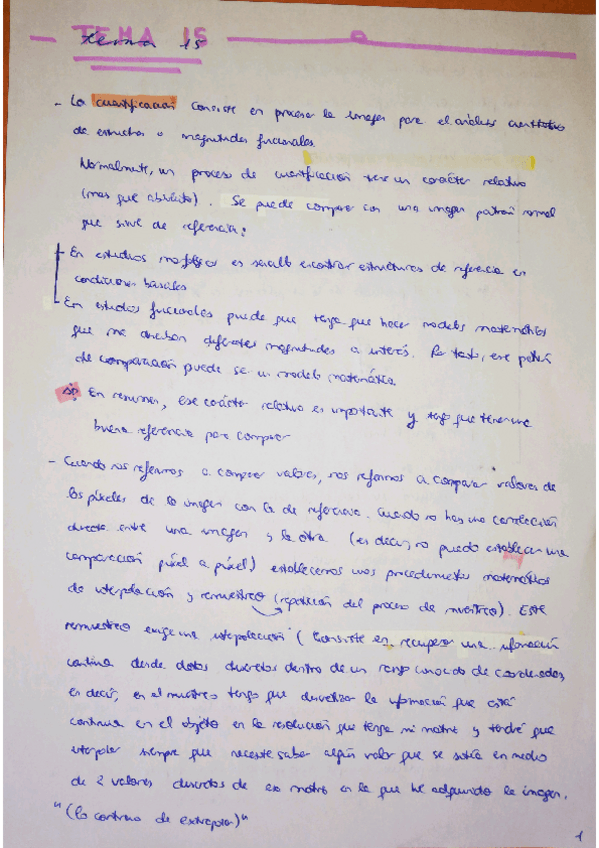 TEMA 15
tema 15
- La cuantificación consiste en procesar la imagen para el análisis cuantitativo
de estructuras o magnitudes funcionales.
Normalmente, un proceso de cuantificación tiene un carácter relativo
(mas que absoluto). Se puede comparar con una imagen patrón normal
que sirve de referencia:
- En estudios morfológicos es sencillo encontrar estructuras de referencia en
condiciones basales
- En estudios funcionales puede que tenga que hacer modelos matemáticos
que me describan diferentes magnitudes de interés. Por tanto, ese patrón
de comparación puede ser un modelo matemático.
En resumen, ese carácter relativo es importante y tengo que tener una
buena referencia para comparar
- Cuando nos referimos a comparar valores, nos referimos a comparar valores de
los píxeles de la imagen con la de referencia. Cuando no hay una correlación
directa entre una imagen y la otra (es decir, no puedo establecer una
comparación píxel a píxel) establecemos unos procedimientos matemáticos
de interpolación y remuestreo (repetición del proceso de muestreo). Este
remuestreo exige una interpolación (consiste en recuperar una información
continua desde datos discretos dentro de un rango conocido de coordenadas,
es decir, en el muestreo tengo que discretizar la información que está
continua en el objeto en la resolución que tenga mi matriz y tendré que
interpolar siempre que necesite saber algún valor que se sitúa en medio
de 2 valores discretos de esa matriz en la que he adquirido la imagen.
"(lo contrario de extrapolar)"
1